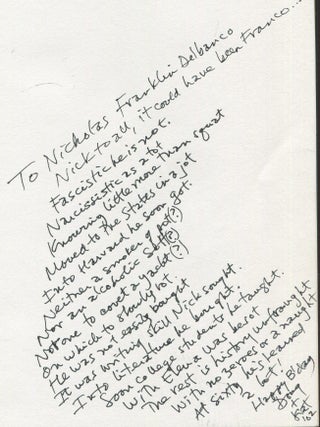 To Nicholas Franklin Delbanco
Nick to all, it could have been Franco...
Fascistic he is not.
Narcissistic as a tot
Knowing little more than squat
Moved to the States in a jot
Into Harvard he soon got.
Neither a smoker of pot (?)
Nor an alcoholic sot (?)
Not one to covet a yacht (?)
On which to slowly rot.
He was not easily bought
It was writing skill Nick sought.
Into literature he brought.
Soon college students he taught.
With Elena was besot
The rest is history unfraught
With no zeroes or a naught
At sixty his learned
a lot.
Happy B'day
Doug
8/27
'02